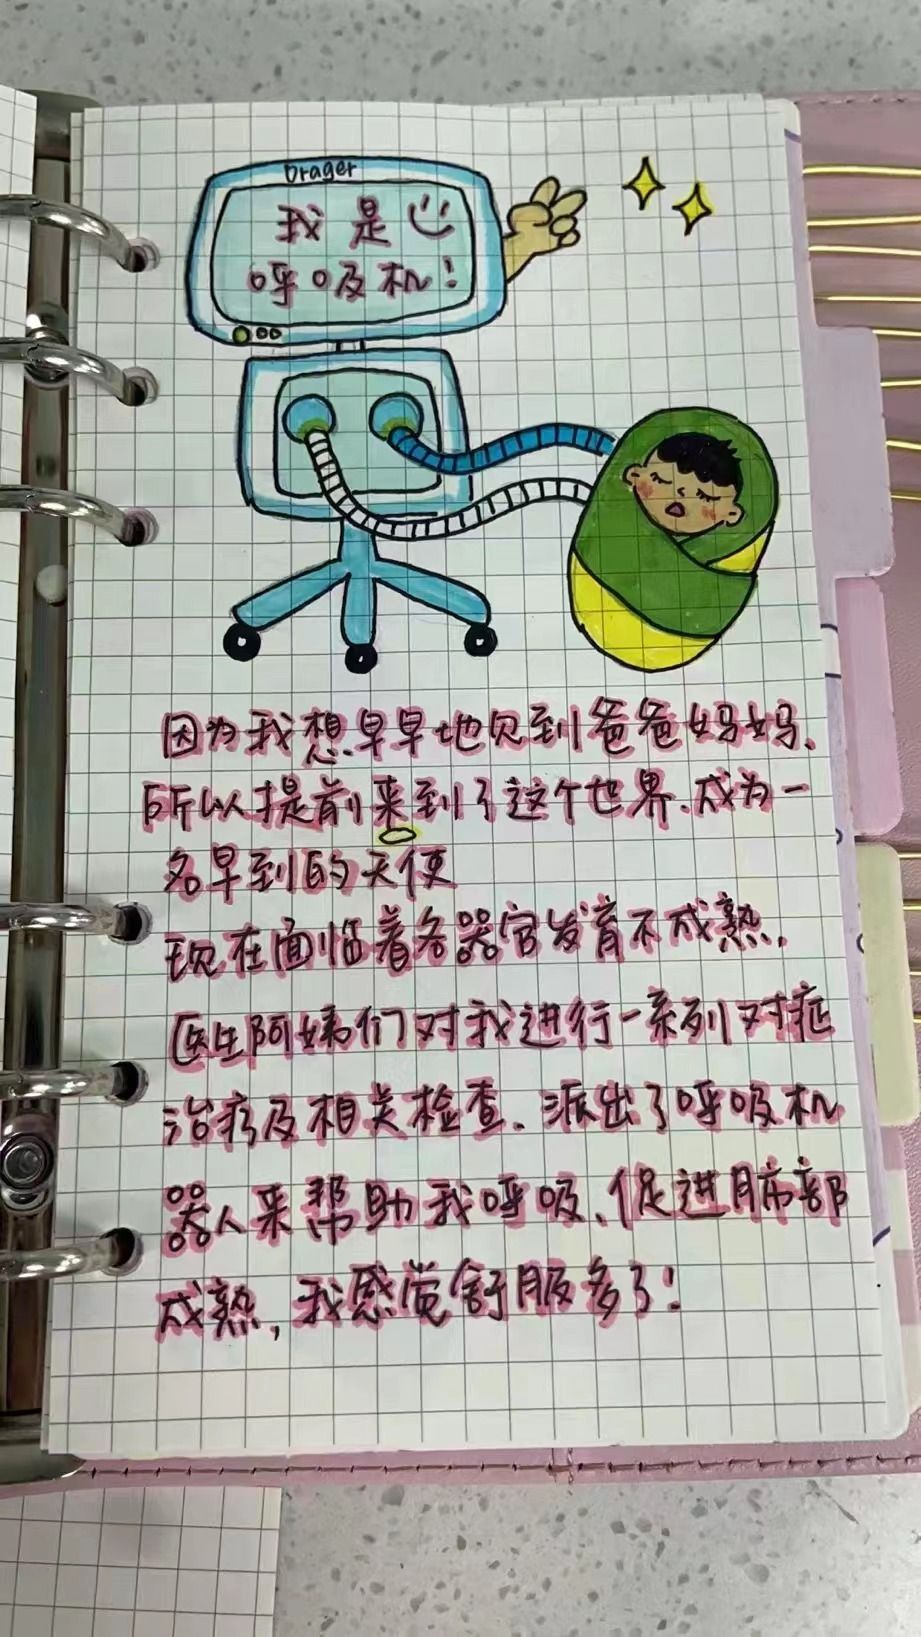 Drager
我是
呼吸机!
因为我想早早地见到爸爸妈妈、
所以提前来到了这个世界.成为一
名早到的天使
现在面临着各器官发育不成熟.
医生阿姨们对我进行一系列对症
治疗及相关检查.派出了呼吸机
器人来帮助我呼吸、促进肺部
成熟,我感觉舒服多了!